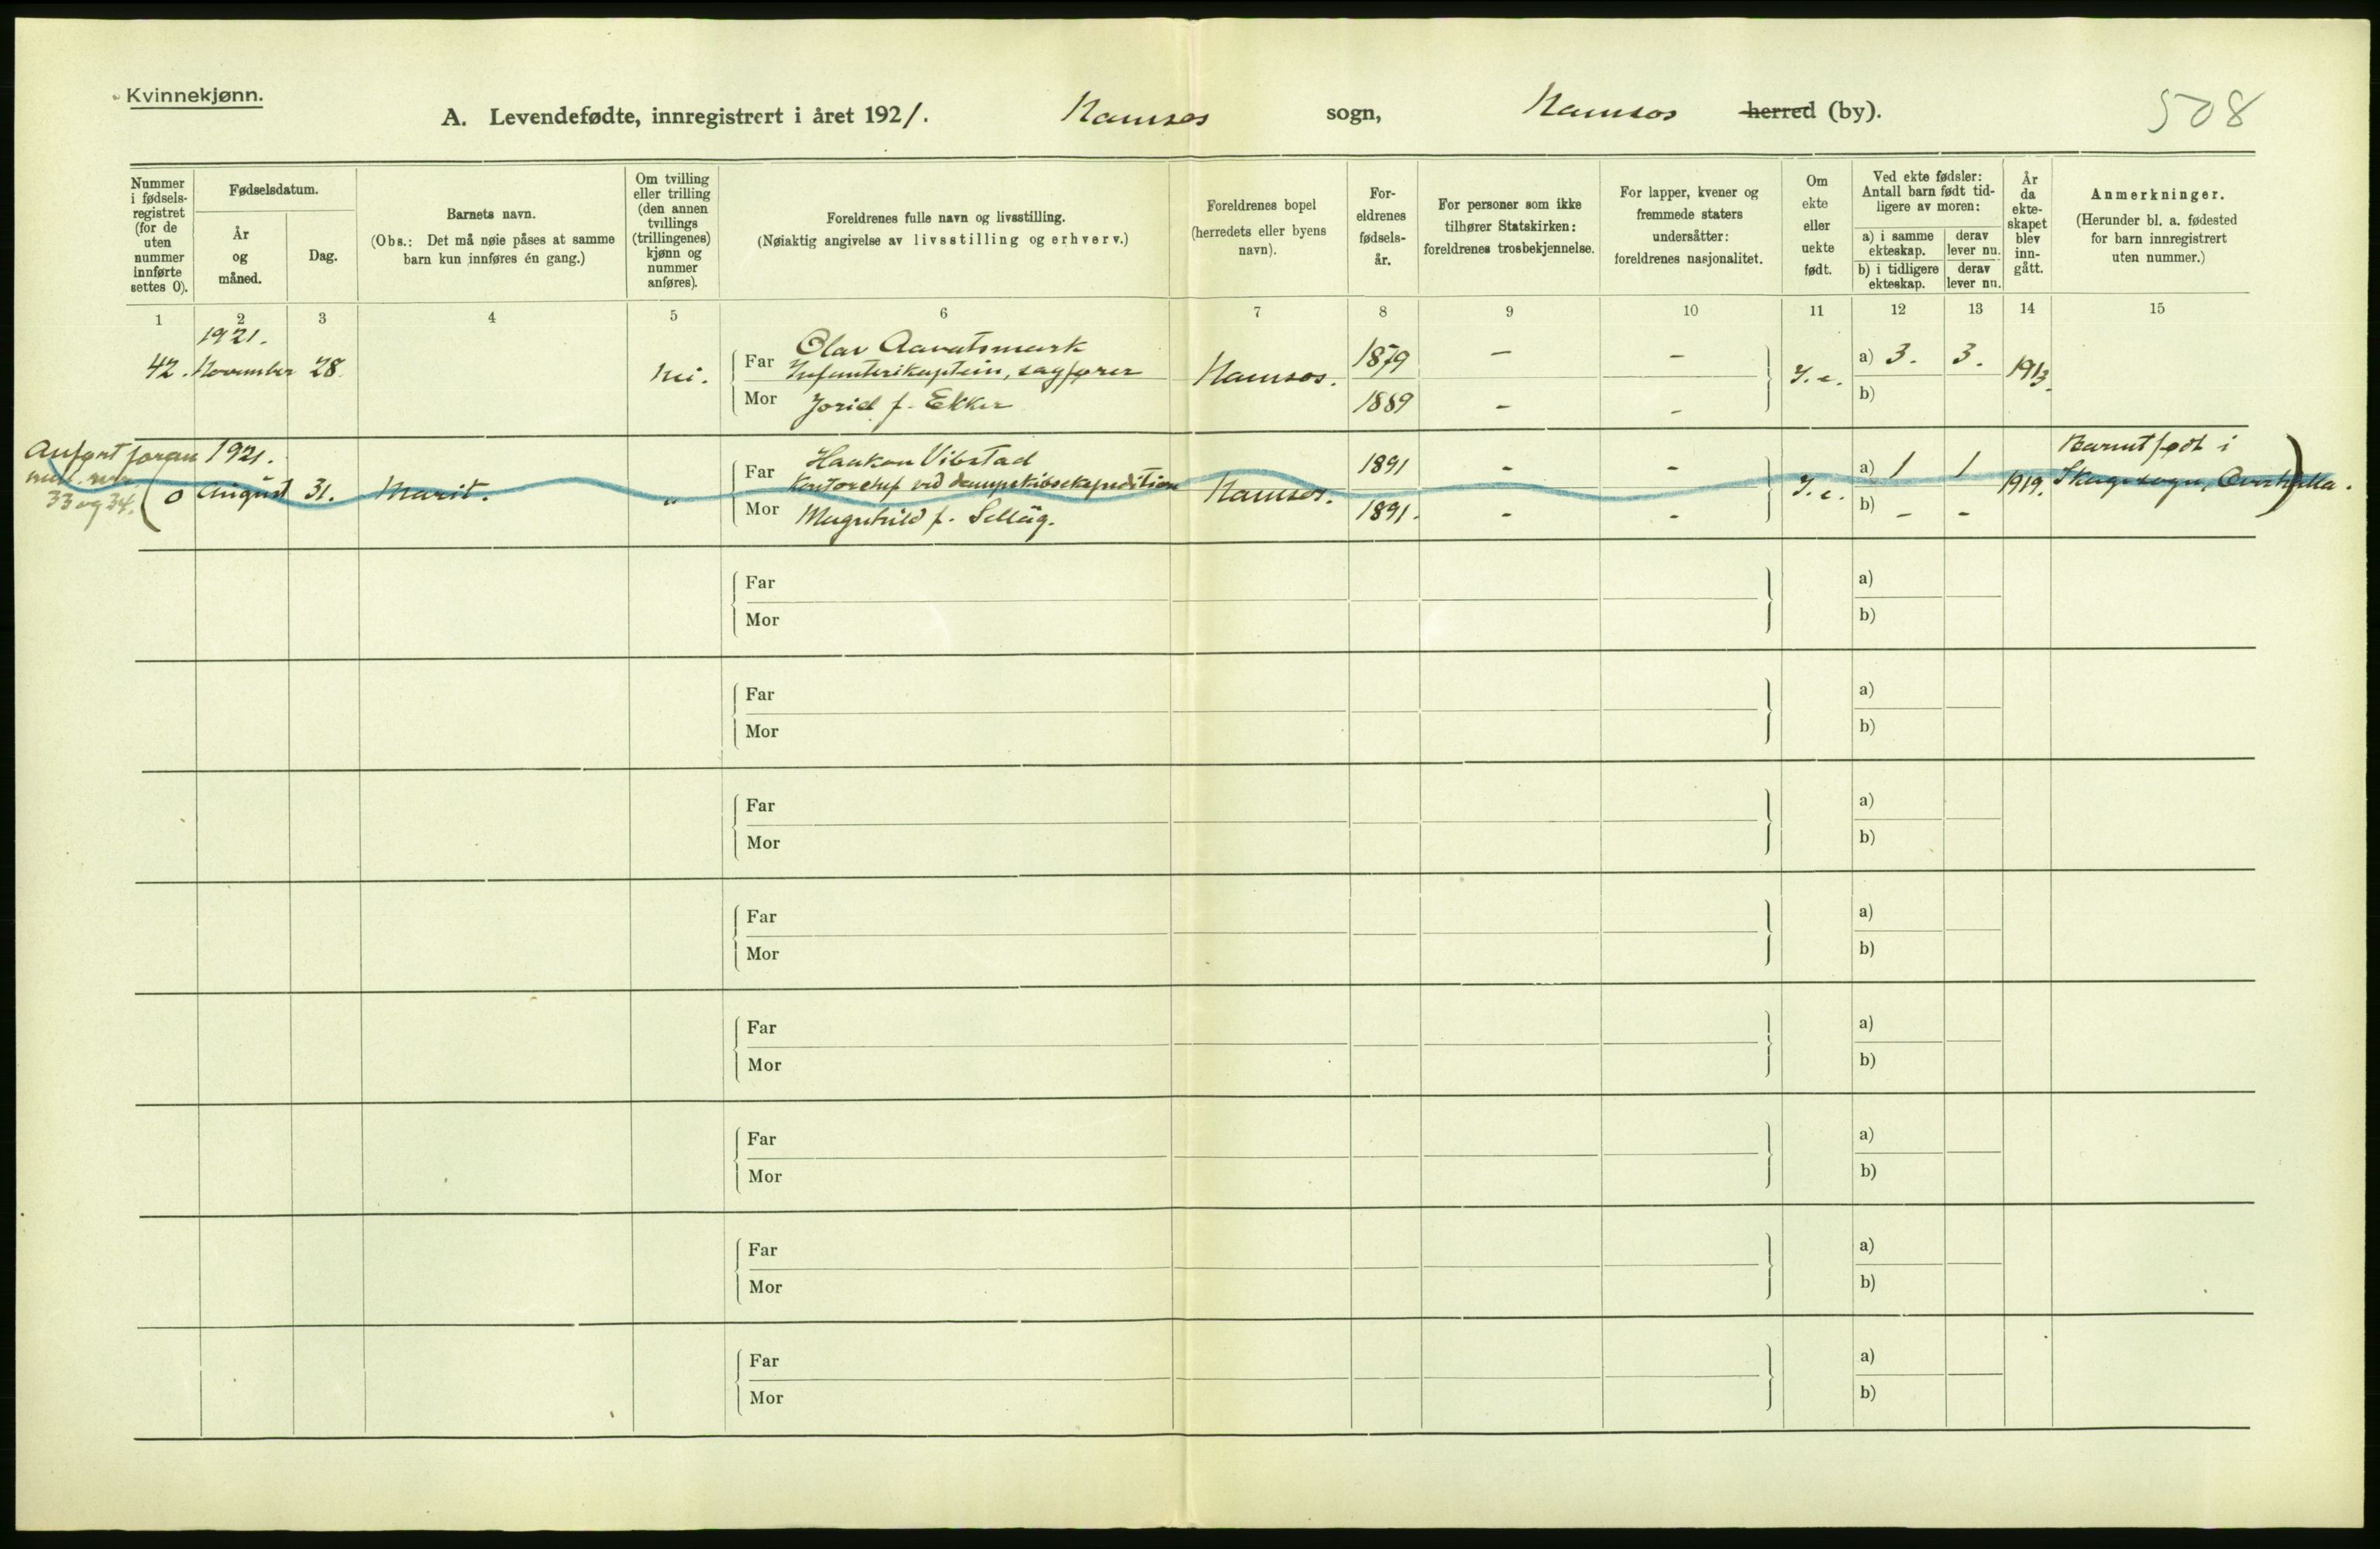 Kvinnekjønn.
A. Levendefødte, innregistrert i året 1921. Namsos sogn, Namsos herred (by).
508
Nummer i fødsels- registret (for de uten nummer innførte settes 0).
Fødselsdatum.
År og måned.
Dag.
Barnets navn.
(Obs.: Det må nøie påses at samme barn kun innføres én gang.)
Om tvilling eller trilling (den annen tvillings (trillingenes) kjønn og nummer anføres).
Foreldrenes fulle navn og livsstilling.
(Nøiaktig angivelse av livsstilling og erhverv.)
Foreldrenes bopel (herredets eller byens navn).
For- eldrenes fødsels- år.
For personer som ikke tilhører Statskirken: foreldrenes trosbekjennelse.
For lapper, kvener og fremmede staters undersåtter: foreldrenes nasjonalitet.
Om ekte eller uekte født.
Ved ekte fødsler: Antall barn født tid- ligere av moren:
a) i samme ekteskap.
derav lever nu.
b) i tidligere ekteskap.
derav lever nu.
År da ekte- skapet blev inn- gått.
Anmerkninger.
(Herunder bl. a. fødested for barn innregistrert uten nummer.)
1 2 3 4 5 6 7 8 9 10 11 12 13 14 15
1921.
42. November 28. Nei.
Far Olav Aavatsmark
Infanterikaptein, sagfører
Mor Jorid f. Ekker
Namsos. 1879 – –
1889 – –
I. e. a) 3. 3. 1913.
b)
Anført foran
33 og 34.
1921.
(0 August 31. Marit. "
Far Haakon Vibstad
Kontorchef ved dampskibsekspedition
Mor Magnhild f. Selläg.
Namsos. 1891 - -
1891. - -
I. e. a) 1 1 1919.
b) - -
Barnet født i
Skage sogn, Overhalla.)
Far a)
Mor b)
Far a)
Mor b)
Far a)
Mor b)
Far a)
Mor b)
Far a)
Mor b)
Far a)
Mor b)
Far a)
Mor b)
Far a)
Mor b)